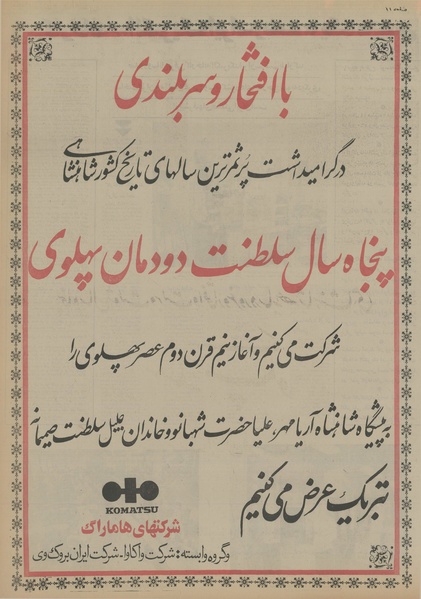 صفحه ۱۱
با افتخار و سربلندی
در گرامیداشت پرثمرترین سالهای تاریخ کشور شاهنشاهی
پنجاه سال سلطنت دودمان پهلوی
شرکت می کنیم و آغاز نیم قرن دوم عصر پهلوی را
به پیشگاه شاهنشاه آریامهر، علیا حضرت شهبانو و خاندان جلیل سلطنت صمیمانه
تبریک عرض می کنیم
KOMATSU
شرکتهای هاماراگ
وگروه وابسته: شرکت واکاوا - شرکت ایران بروک وی